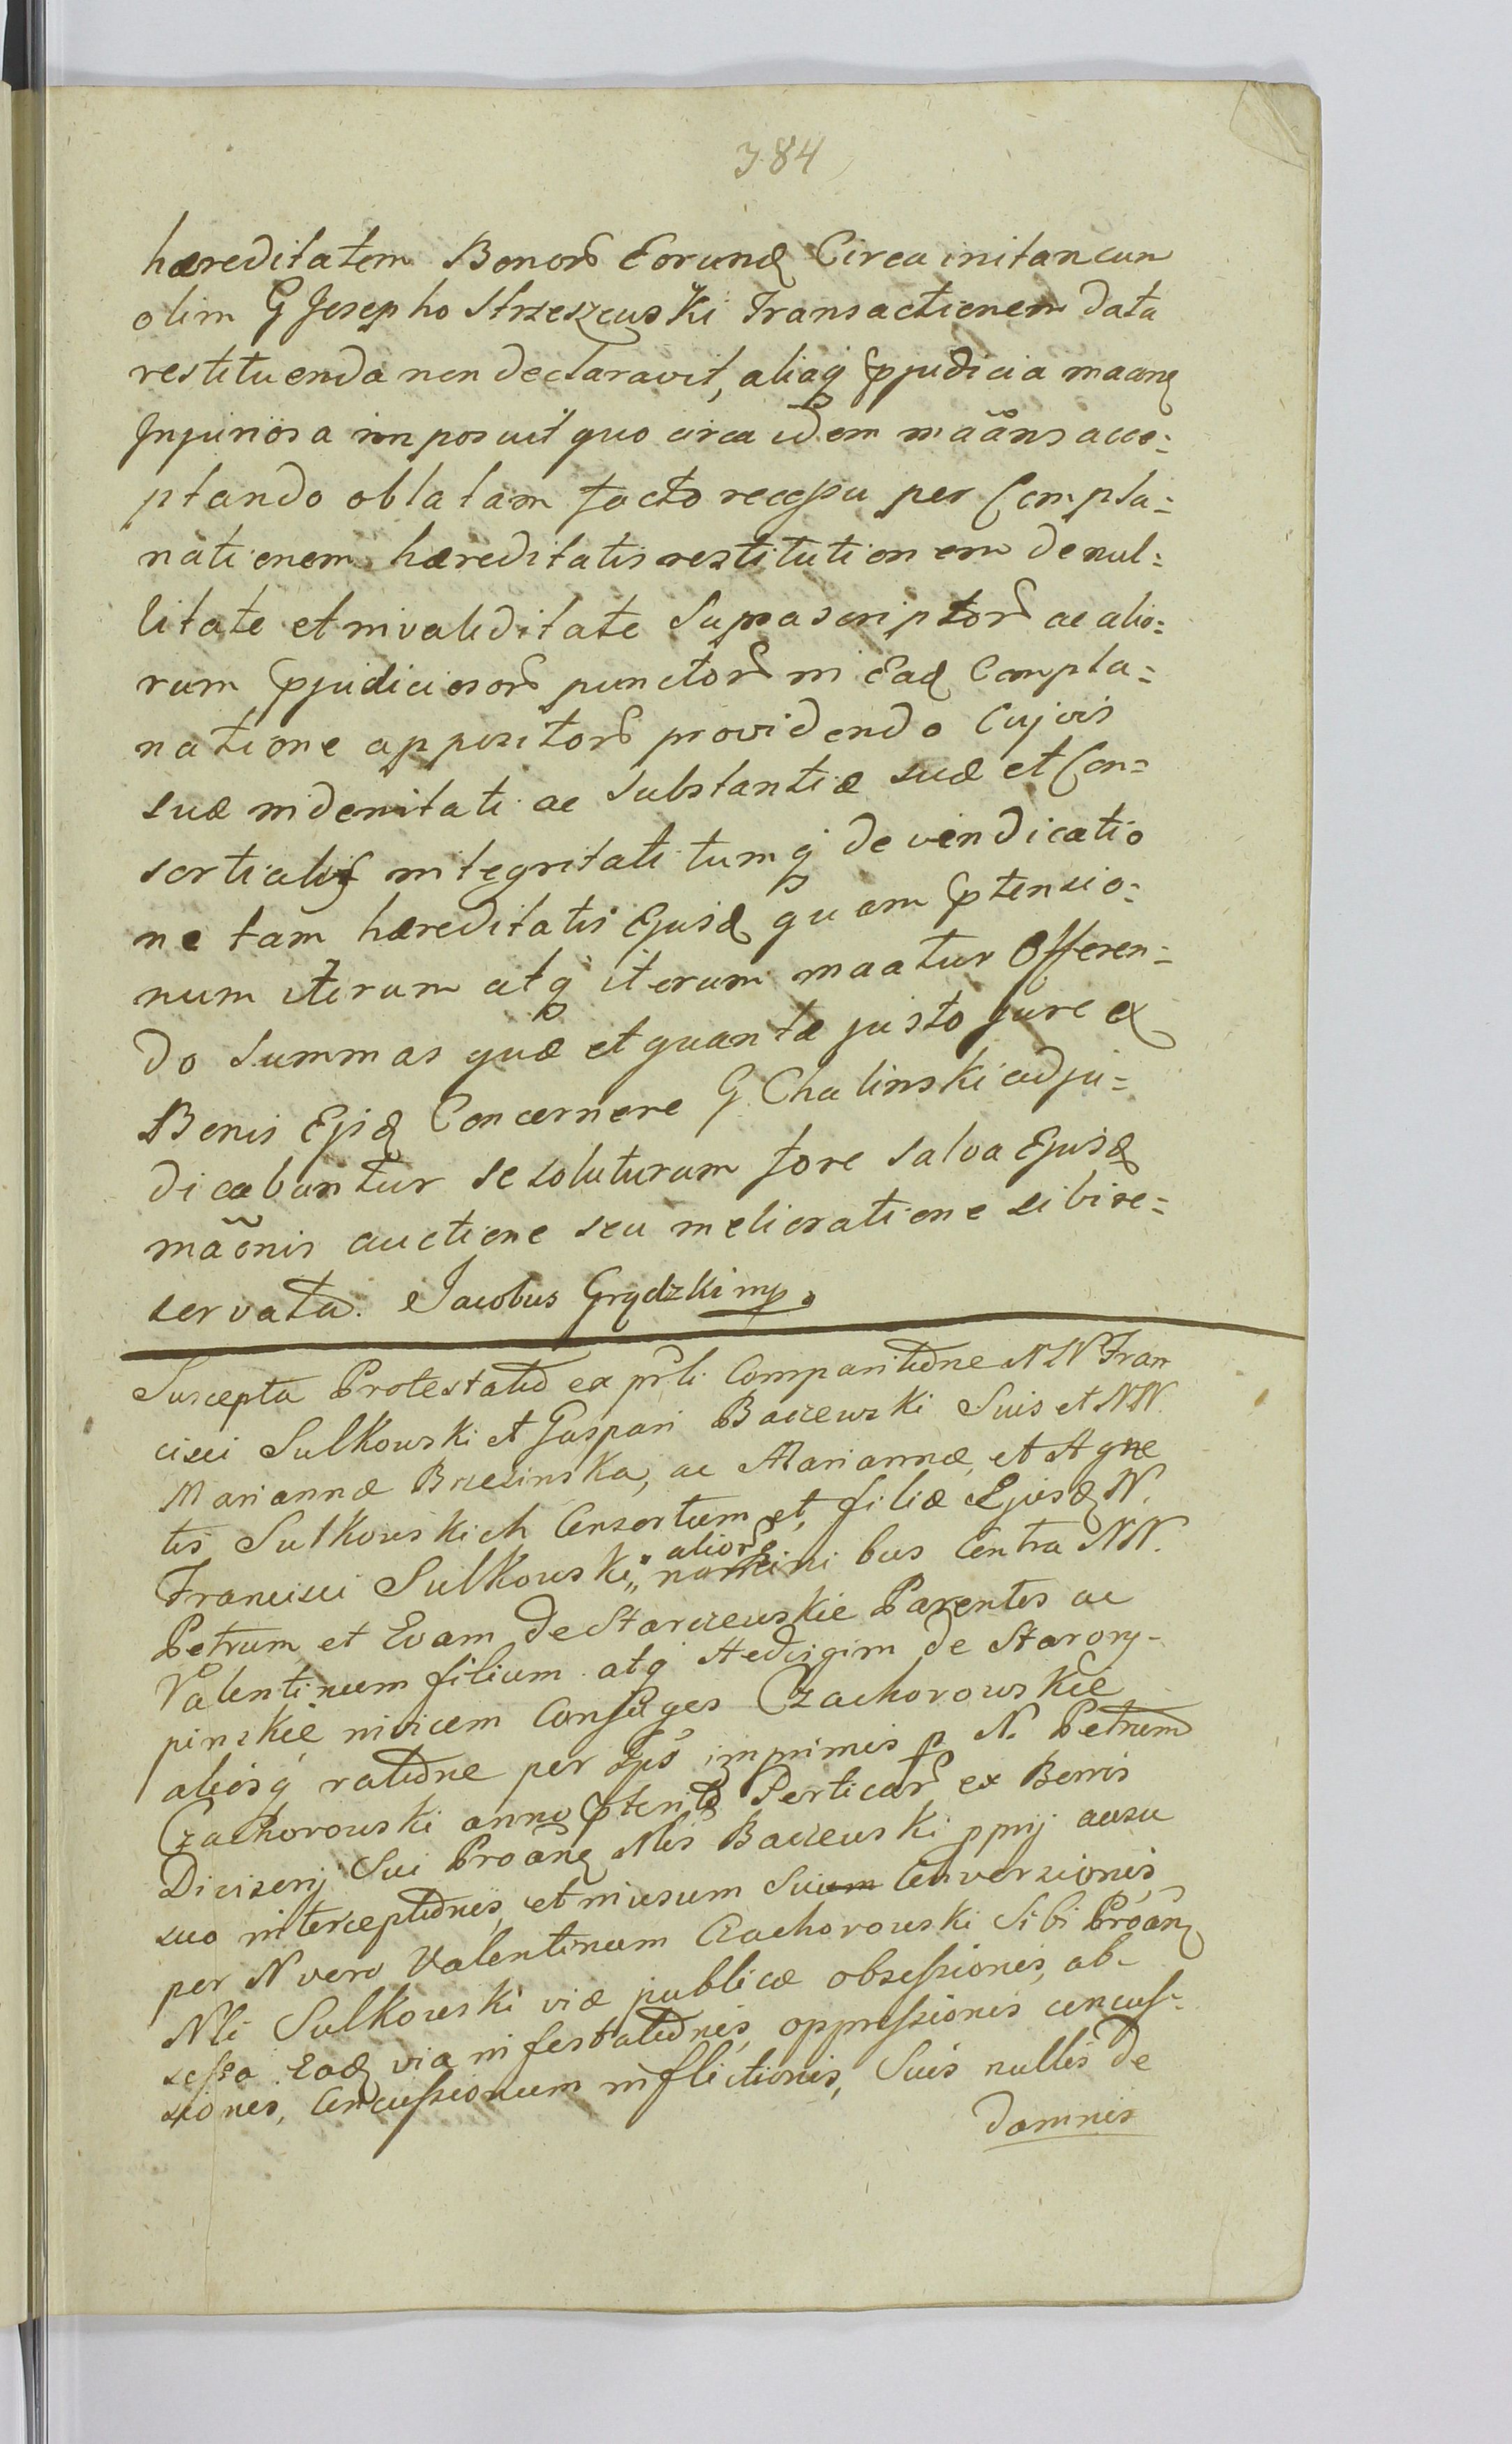 384
hæreditatem Bonor Eorund Circa initan cum
olim G Josepho Strzeszewski Transactionem data
restituenda non declaravit, aliaq ppjudicia maang
Injuriosa imposuit quo circa idem maans acce=
ptando oblatam facto recessu per Compla=
nationem hæreditatis restitutionem de nul=
litate et invaliditate Suprascriptor ac alio=
rum ppjudiciosor punctor in Ead Compla=
natione appositor providendo Cujvis
suæ indemnitati ac Substantiæ suæ et Con=
sortialis integritati tumq de vendicatio
ne tam hæreditatis Ejusd quam pptensio=
num iterum atq iterum maatur Offeren=
do Summas quæ et quantæ justo jure ex
Bonis Ejsd Concernere G Chalinski adju=
dicabuntur se soluturum fore salva Ejusd
maõnis auctione seu melioratione sibi re=
servata. Jacobus Grądzki mp.
Suscepta Protestatio ex prli Comparitione NN Fran
cisci Sulkowski et Gaspari Baczewski Suis et NN.
Mariannæ Brzezinska, ac Mariannæ, et Agne
tis Sulkowskich Consortum et filiæ Ejusd N.
Francisci Sulkowski, aliorq nomini bus Contra NN.
Petrum et Evam de Starczewskie Parentes ac
Valentinum filium atq Hedvigim de Starorg-
pinskie invicem Conjuges Czachorowskie
aliosq ratione per Ips imprimis p N. Petrum
Czachorowski anno pterito Perticar ex Bonis
Divisorij Sui Proang Nlis Baczewski pprij ausu
suo interceptionis, et in usum Suum Conversionis
per N vero Valentinum Czachorowski Sibi Proang
Nli Sulkowski viæ publicæ obsessionis, ab-
sessa Ead via infestationis, oppressionis concus-
siones, Concussionum inflictionis, Suis nullis de
damnis